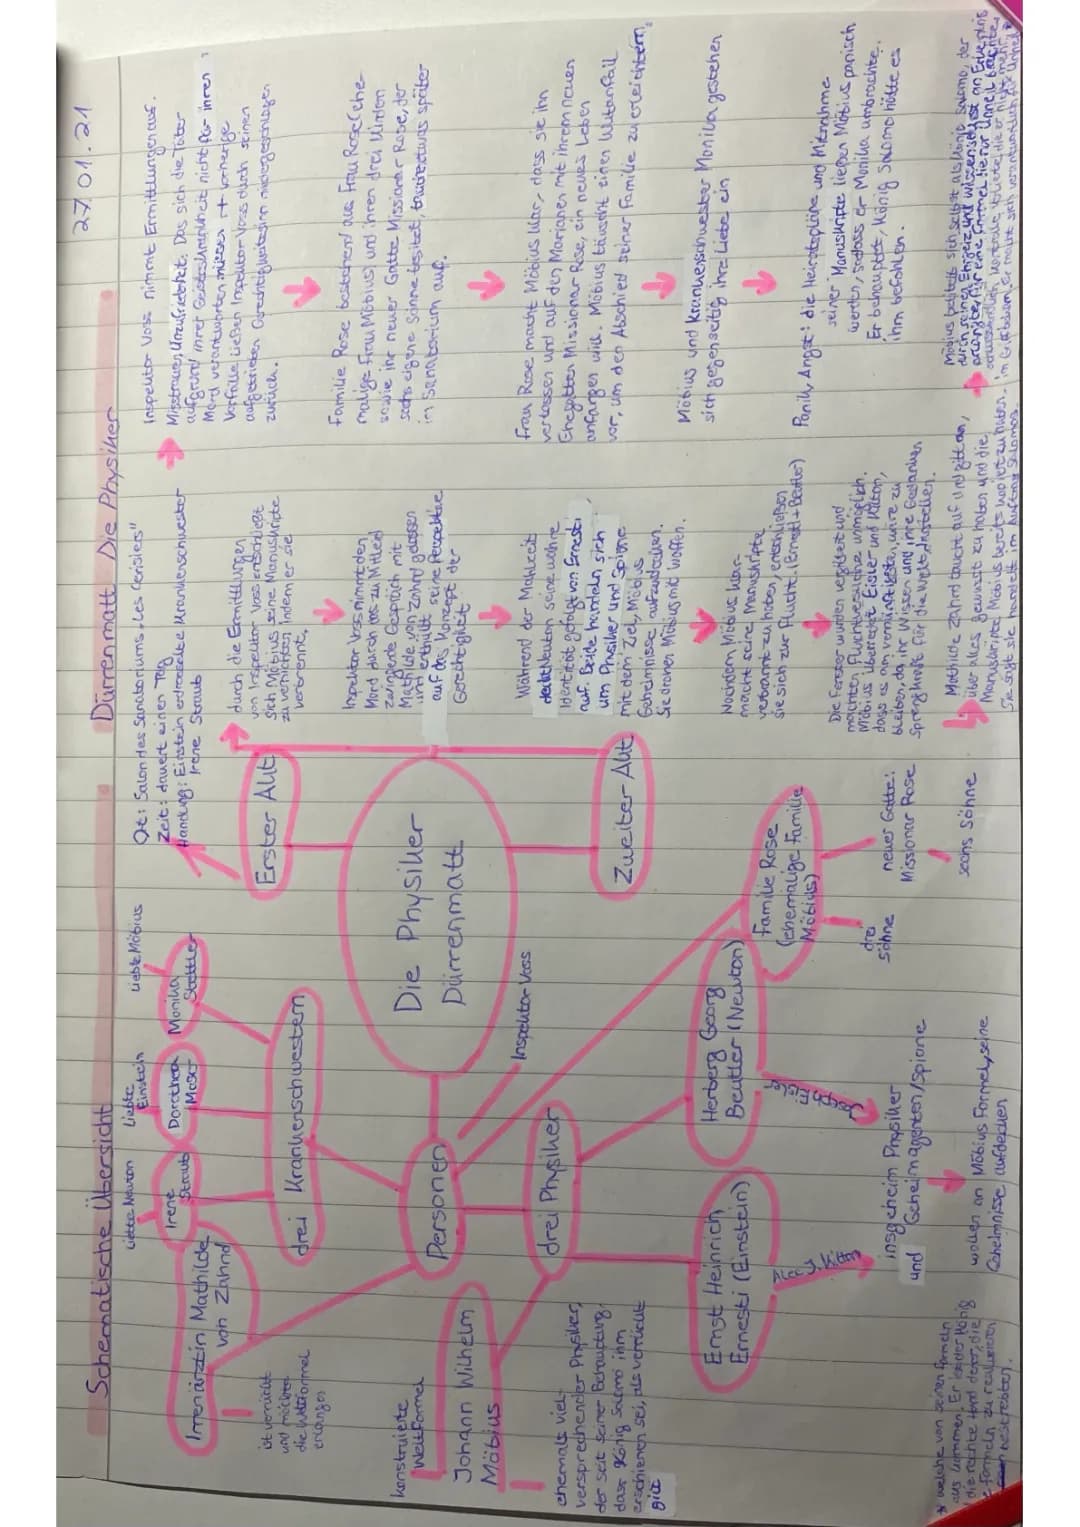 Schematische Übersicht
Dürrenmatt Die Physiker
27.01.21
Irrenärztin Mathilde
von Zahnd
ist verrückt
und möchte
die Weltformel
erlangen
liebte Newton
Irene
Straub
liebte
Einstein
Dorothea
Moser
liebte Möbius
Monika
Stettler
drei Krankenschwestern
Personen
Inspektor Voss
drei Physiker
konstruierte
Weltformel
Johann Wilhelm
Möbius
ehemals viel-
versprechender Physiker,
der seit seiner Behauptung,
dass König Salomo ihm
erschienen sei, als verrückt
gilt
Ernst Heinrich
Ernesti (Einstein)
Herberg Georg
Beutler (Newton)
insgeheim Physiker
und Geheimagenten/Spione
wollen an Möbius Formeln, seine
Geheimnisse aufdecken
Familie Rose
(ehemalige Familie
Möbius)
drei
Söhne
neuer Gatte:
Missionar Rose
sechs Söhne
Die Physiker
Dürrenmatt
Erster Akt
Zweiter Akt
Ort: Salon des Sanatoriums "Les Cerisiers"
Zeit: dauert einen Tag
Handlung: Einstein erdrosselte Krankenschwester
Irene Straub
Inspektor Voss nimmt Ermittlungen auf.
Misstrauen, Unzufriedenheit: Das sich die Täter
aufgrund ihrer Geisteskrankheit nicht für ihren
Mord verantworten müssen + vorherige
Vorfälle ließen Inspektor Voss durch seinen
aufgetretenen Gerechtigkeitssinn niedergeschlagen
zurück.
Familie Rose bestehend aus Frau Rose (ehe-
malige Frau Möbius) und ihren drei Kindern
sowie ihr neuer Gatte Missionar Rose, der
sechs eigene Söhne besitzt, taucht etwas später
im Sanatorium auf.
Frau Rose macht Möbius klar, dass sie ihn
verlassen und auf den Marianen mit ihrem neuen
Ehegatten Missionar Rose, ein neues Leben
anfangen will. Möbius täuscht einen Wutanfall
vor, um den Abschied seiner Familie zu erleichtern.
Möbius und Krankenschwester Monika gestehen
sich gegenseitig ihre Liebe ein
Panik, Angst: die Heiratspläne und Mitnahme
seiner Manuskripte ließen Möbius panisch
werden, sodass er Monika umbrachte.
Er behauptet, König Salomo hätte es
ihm befohlen.
durch die Ermittlungen
von Inspektor Voss entschließt
sich Möbius seine Manuskripte
zu vernichten indem er sie
verbrennt.
Inspektor Voss nimmt den
Mord durch das zu Mittleid
zwingende Gespräch mit
Mathilde von Zahnd gelassen
und enthüllt seine Perspektive
auf das Konzept der
Gerechtigkeit
Während der Mahlzeit
deckt Beutler seine wahre
Identität gefolgt von Ernesti
auf. Beide handeln sich
um Physiker und Spione
mit dem Ziel, Möbius
Geheimnisse aufzudecken.
Sie drohen Möbius mit Waffen.
Nachdem Möbius klar-
macht seine Manuskripte
verbrannt zu haben, entschließen
sie sich zur Flucht. (Ernesti + Beutler)
Die Fenster wurden vergittert und
machten Fluchtversuche unmöglich.
Möbius überredet Eisler und Kilton,
dass es am vernünftigsten wäre zu
bleiben, da ihr Wissen und ihre Gedanken
Sprengkraft für die Welt darstellen.
Mathilde Zahnd taucht auf und gibt an,
über alles gewusst zu haben und die
Manuskripte Möbius bereits kopiert zu haben.
Sie sagt sie handelt im Auftrag Salomos.
Möbius betitelt sich selbst als König Salomo, der